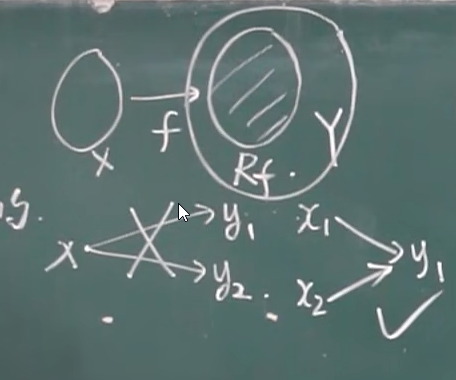 f
X
Y
Rf.
x y₁ y₂.
x₁ x₂ y₁